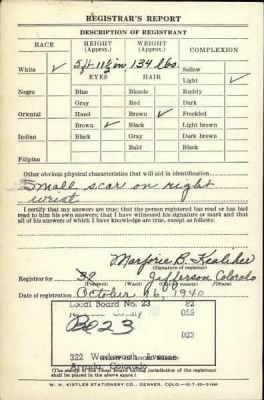 REGISTRAR'S REPORT
DESCRIPTION OF REGISTRANT
RACE HEIGHT (Approx.) WEIGHT (Approx.) COMPLEXION
White ✓ 5 ft 11½ in 134 lbs. Sallow
EYES HAIR Light ✓
Negro Blue Blonde Ruddy
Gray Red Dark
Oriental Hazel Brown ✓ Freckled
Brown ✓ Black Light brown
Indian Black Gray Dark brown
Bald Black
Filipino
Other obvious physical characteristics that will aid in identification
Small scar on right
wrist
I certify that my answers are true; that the person registered has read or has had
read to him his own answers; that I have witnessed his signature or mark and that
all of his answers of which I have knowledge are true, except as follows:
Marjorie B.
(Signature of registrar)
Registrar for 32 Jefferson Colorado
(Precinct) (Ward) (City or county) (State)
Date of registration October 16, 1940
Local Board No. 23 82
059
23 002
322 Wadsworth Avenue
Arvada, Colorado
(The stamp of the Local Board having jurisdiction of the registrant
shall be placed in the above space.)
W. H. KISTLER STATIONERY CO., DENVER, COLO.